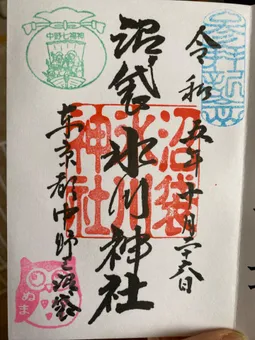 参拝記念
令和五年十月二十六日
沼袋氷川神社
沼袋氷川神社
東京都中野区沼袋
中野七福神
ぬま